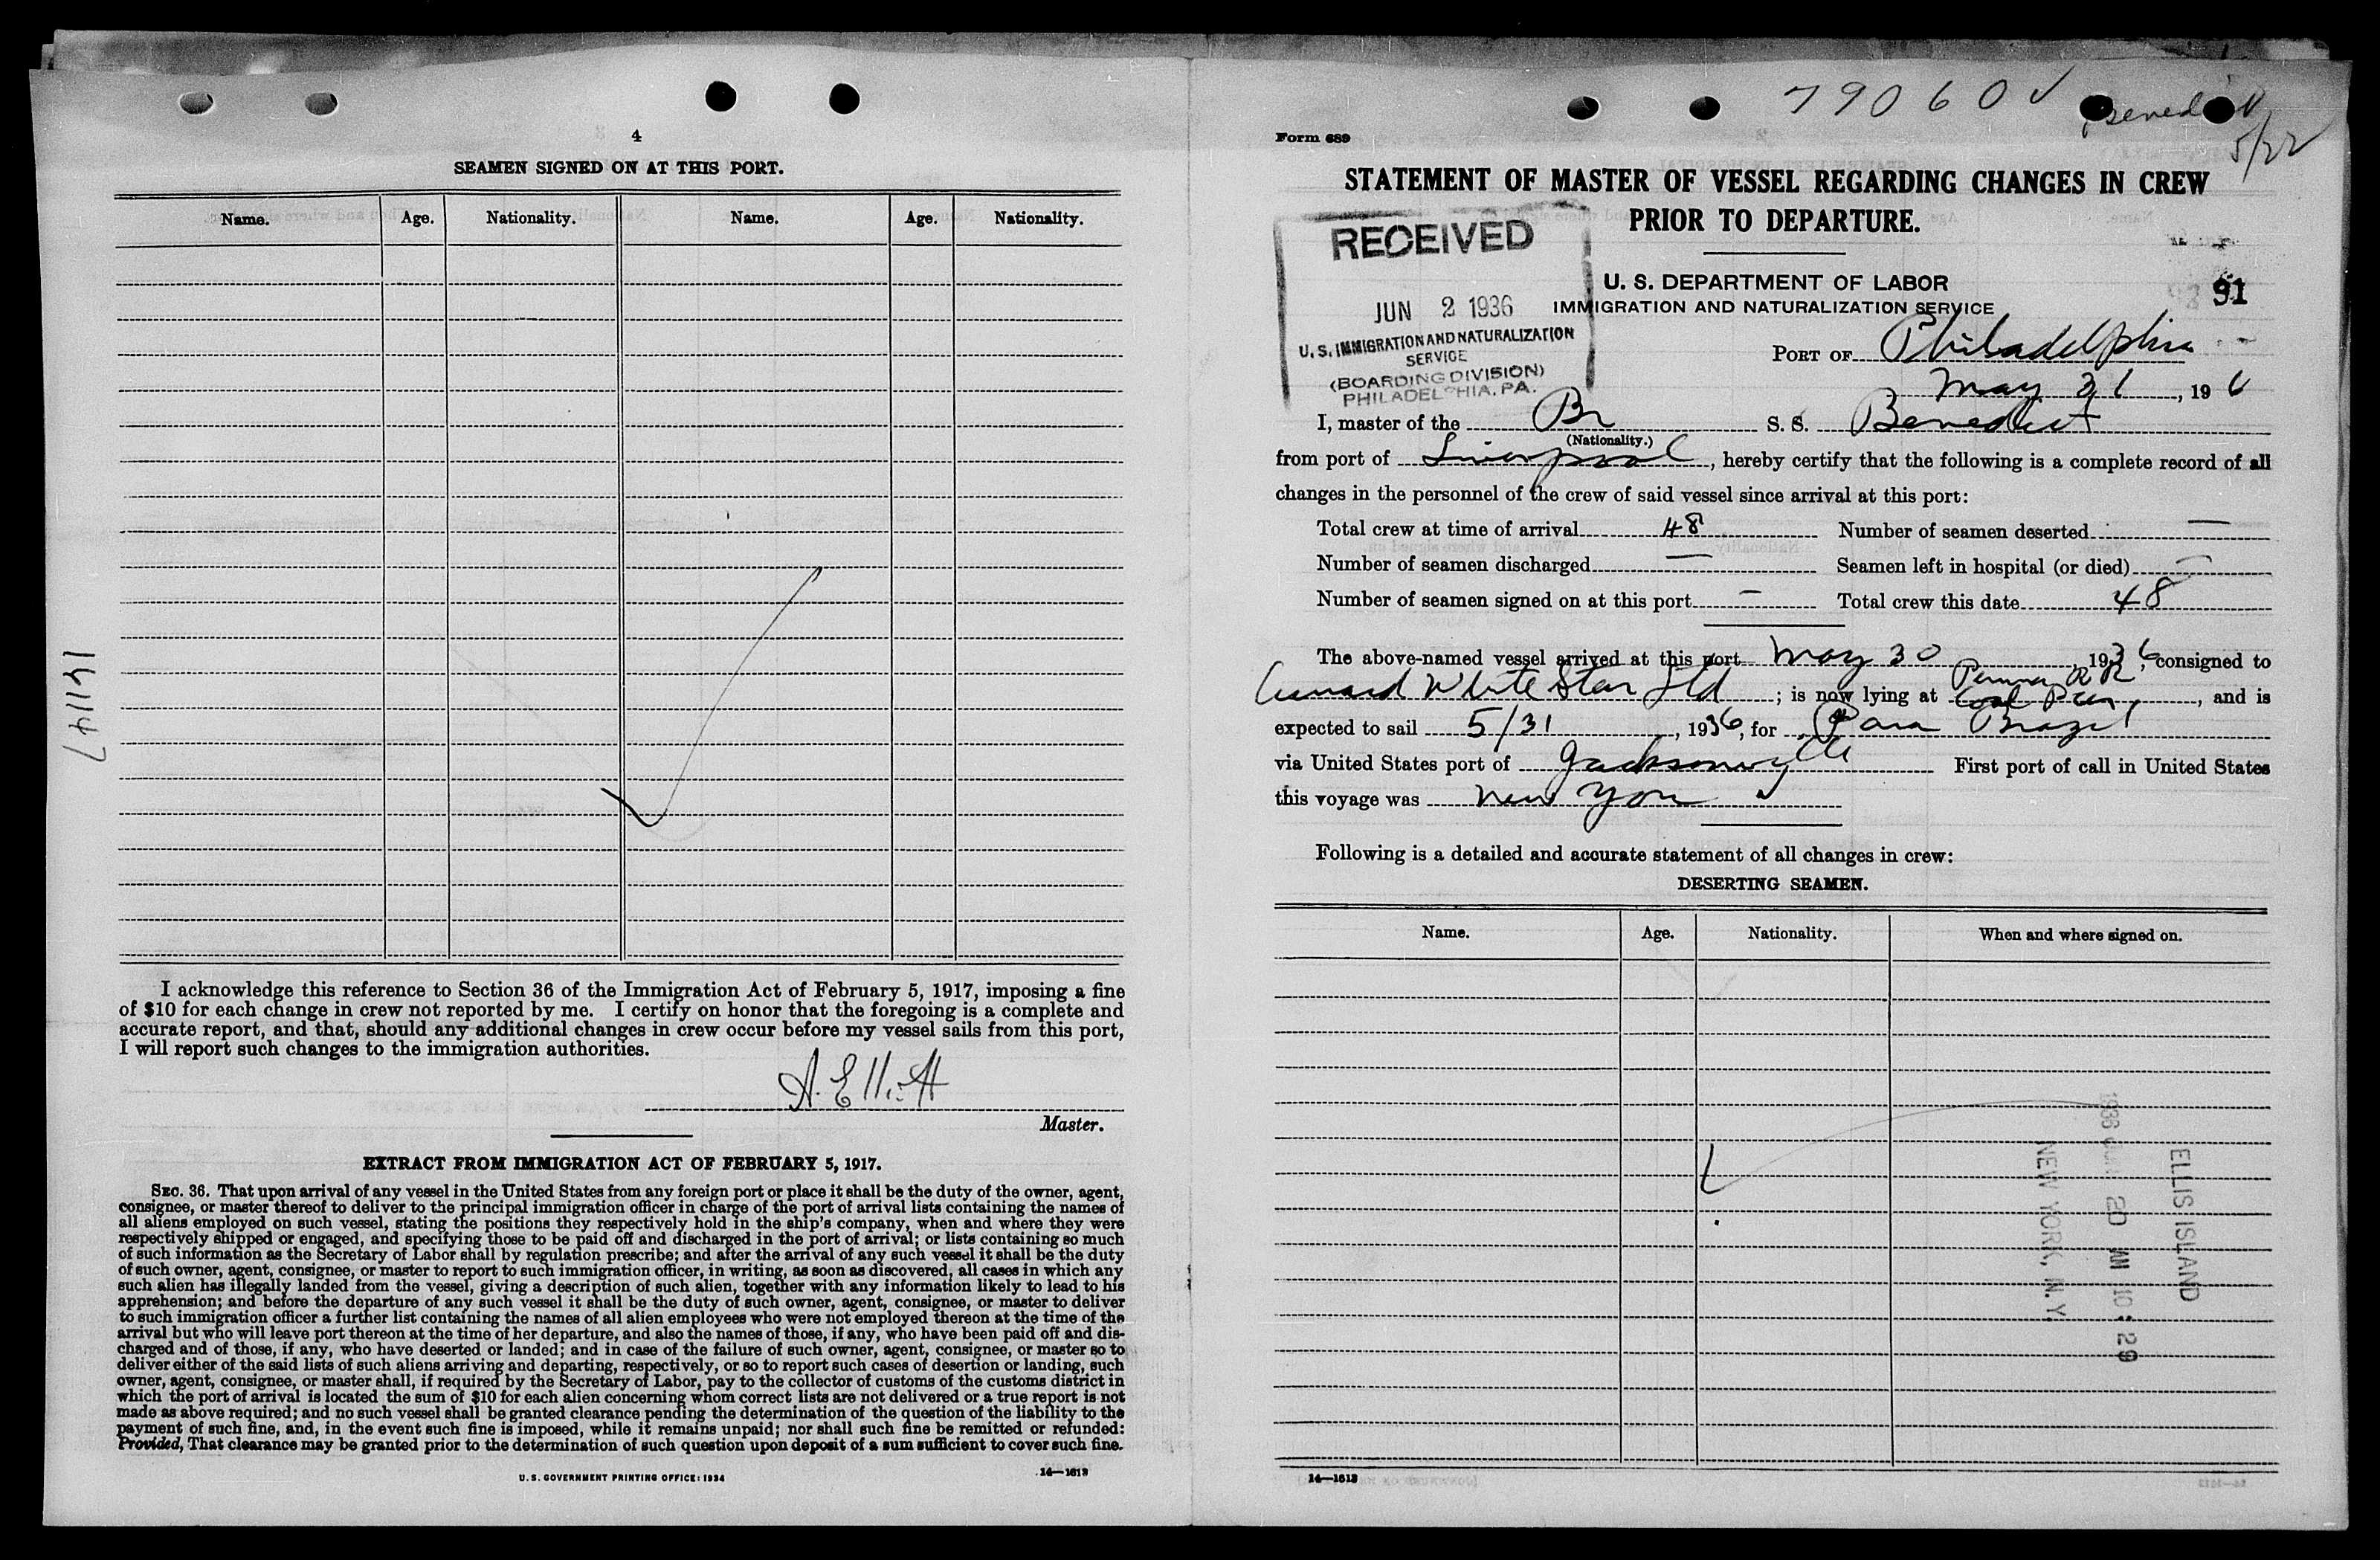 4
SEAMEN SIGNED ON AT THIS PORT.
Name. Age. Nationality. Name. Age. Nationality.
I acknowledge this reference to Section 36 of the Immigration Act of February 5, 1917, imposing a fine
of $10 for each change in crew not reported by me. I certify on honor that the foregoing is a complete and
accurate report, and that, should any additional changes in crew occur before my vessel sails from this port,
I will report such changes to the immigration authorities.
A. Elliott
Master.
EXTRACT FROM IMMIGRATION ACT OF FEBRUARY 5, 1917.
SEC. 36. That upon arrival of any vessel in the United States from any foreign port or place it shall be the duty of the owner, agent,
consignee, or master thereof to deliver to the principal immigration officer in charge of the port of arrival lists containing the names of
all aliens employed on such vessel, stating the positions they respectively hold in the ship's company, when and where they were
respectively shipped or engaged, and specifying those to be paid off and discharged in the port of arrival; or lists containing so much
of such information as the Secretary of Labor shall by regulation prescribe; and after the arrival of any such vessel it shall be the duty
of such owner, agent, consignee, or master to report to such immigration officer, in writing, as soon as discovered, all cases in which any
such alien has illegally landed from the vessel, giving a description of such alien, together with any information likely to lead to his
apprehension; and before the departure of any such vessel it shall be the duty of such owner, agent, consignee, or master to deliver
to such immigration officer a further list containing the names of all alien employees who were not employed thereon at the time of the
arrival but who will leave port thereon at the time of her departure, and also the names of those, if any, who have been paid off and dis-
charged and of those, if any, who have deserted or landed; and in case of the failure of such owner, agent, consignee, or master so to
deliver either of the said lists of such aliens arriving and departing, respectively, or so to report such cases of desertion or landing, such
owner, agent, consignee, or master shall, if required by the Secretary of Labor, pay to the collector of customs of the customs district in
which the port of arrival is located the sum of $10 for each alien concerning whom correct lists are not delivered or a true report is not
made as above required; and no such vessel shall be granted clearance pending the determination of the question of the liability to the
payment of such fine, and, in the event such fine is imposed, while it remains unpaid; nor shall such fine be remitted or refunded:
Provided, That clearance may be granted prior to the determination of such question upon deposit of a sum sufficient to cover such fine.
U. S. GOVERNMENT PRINTING OFFICE: 1934
14—1613
14117
79060
5/22
Form 689
STATEMENT OF MASTER OF VESSEL REGARDING CHANGES IN CREW
PRIOR TO DEPARTURE.
RECEIVED
JUN 2 1936
U. S. IMMIGRATION AND NATURALIZATION
SERVICE
(BOARDING DIVISION)
PHILADELPHIA, PA.
U. S. DEPARTMENT OF LABOR
IMMIGRATION AND NATURALIZATION SERVICE
91
PORT OF Philadelphia
May 31, 19 6
I, master of the Br S. S. Benedict
(Nationality.)
from port of Liverpool, hereby certify that the following is a complete record of all
changes in the personnel of the crew of said vessel since arrival at this port:
Total crew at time of arrival 48 Number of seamen deserted —
Number of seamen discharged — Seamen left in hospital (or died) —
Number of seamen signed on at this port — Total crew this date 48
The above-named vessel arrived at this port May 30, 1936, consigned to
Cunard White Star Ltd; is now lying at Penna RR Coal Pier, and is
expected to sail 5/31, 1936, for Para Brazil
via United States port of Jacksonville First port of call in United States
this voyage was New York
Following is a detailed and accurate statement of all changes in crew:
DESERTING SEAMEN.
Name. Age. Nationality. When and where signed on.
ELLIS ISLAND
1936 JUN 20 AM 10:29
NEW YORK, N. Y.
14—1613